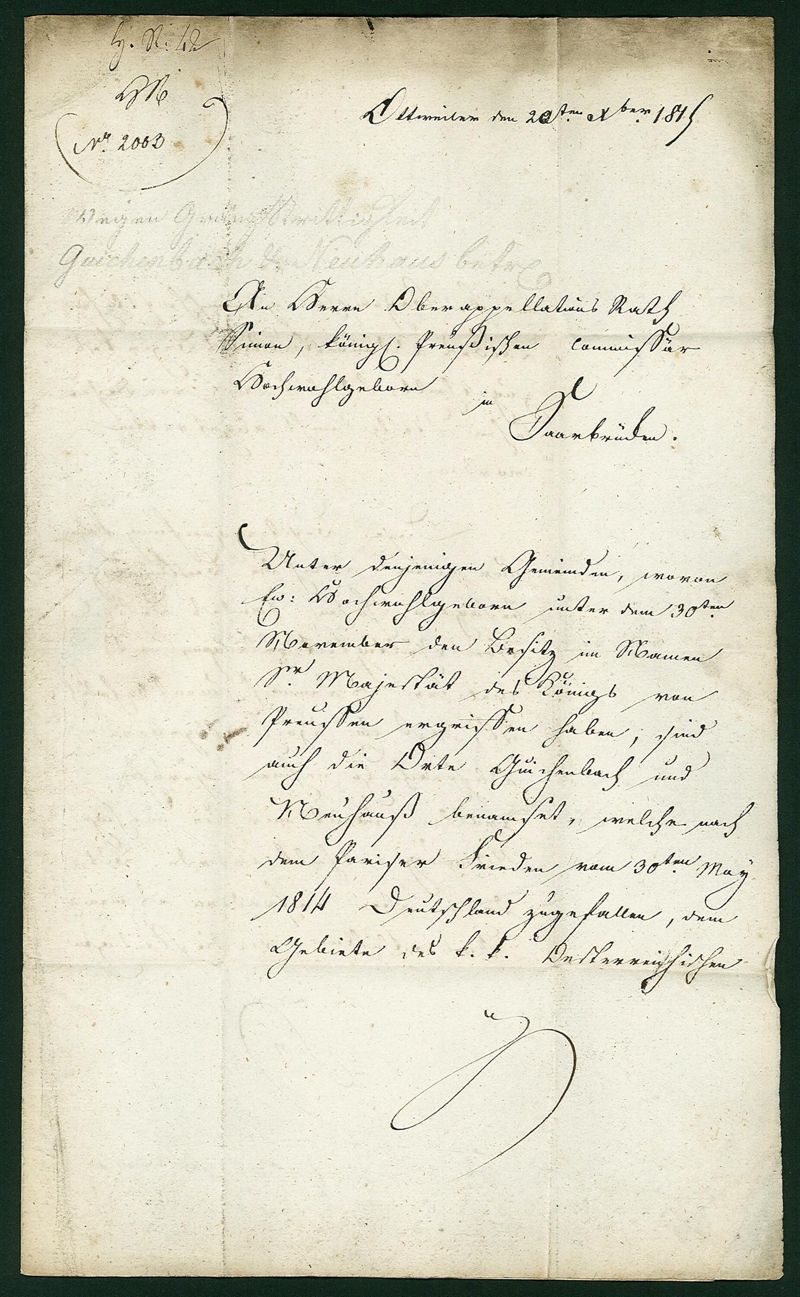 N. 42
Nro 2003
Ottweiler den 20ten Xber 1815
Wegen Gränzstrittigkeit
Guichenbach & Neuhaus betr.
An Herrn Oberappellations Rath
Simon, königl. Preußischen Commissär
Hochwohlgeborn
in
Saarbrücken.
Unter denjenigen Gemeinden, wovon
Ew: Hochwohlgeborn unter dem 30ten
November den Besitz im Namen
Sr Majestät des Königs von
Preussen ergriffen haben, sind
auch die Orte Guichenbach und
Neuhauß benamset, welche nach
dem Pariser Frieden vom 30ten May
1814 Deutschland zugefallen, dem
Gebiete des k. k. Oesterreichischen